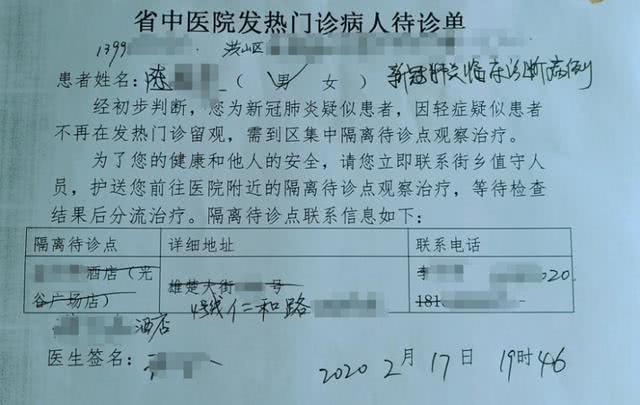 省中医院发热门诊病人待诊单
1399 洪山区
患者姓名:陈 (男 女) 新冠肺炎临床诊断病例
经初步判断,您为新冠肺炎疑似患者,因轻症疑似患者
不再在发热门诊留观,需到区集中隔离待诊点观察治疗。
为了您的健康和他人的安全,请您立即联系街乡值守人
员,护送您前往医院附近的隔离待诊点观察治疗,等待检查
结果后分流治疗。隔离待诊点联系信息如下:
隔离待诊点 详细地址 联系电话
酒店(光 雄楚大街 号 李 020
谷广场店) 4号线仁和路 181
酒店
医生签名: 2020 2月17日 19时46